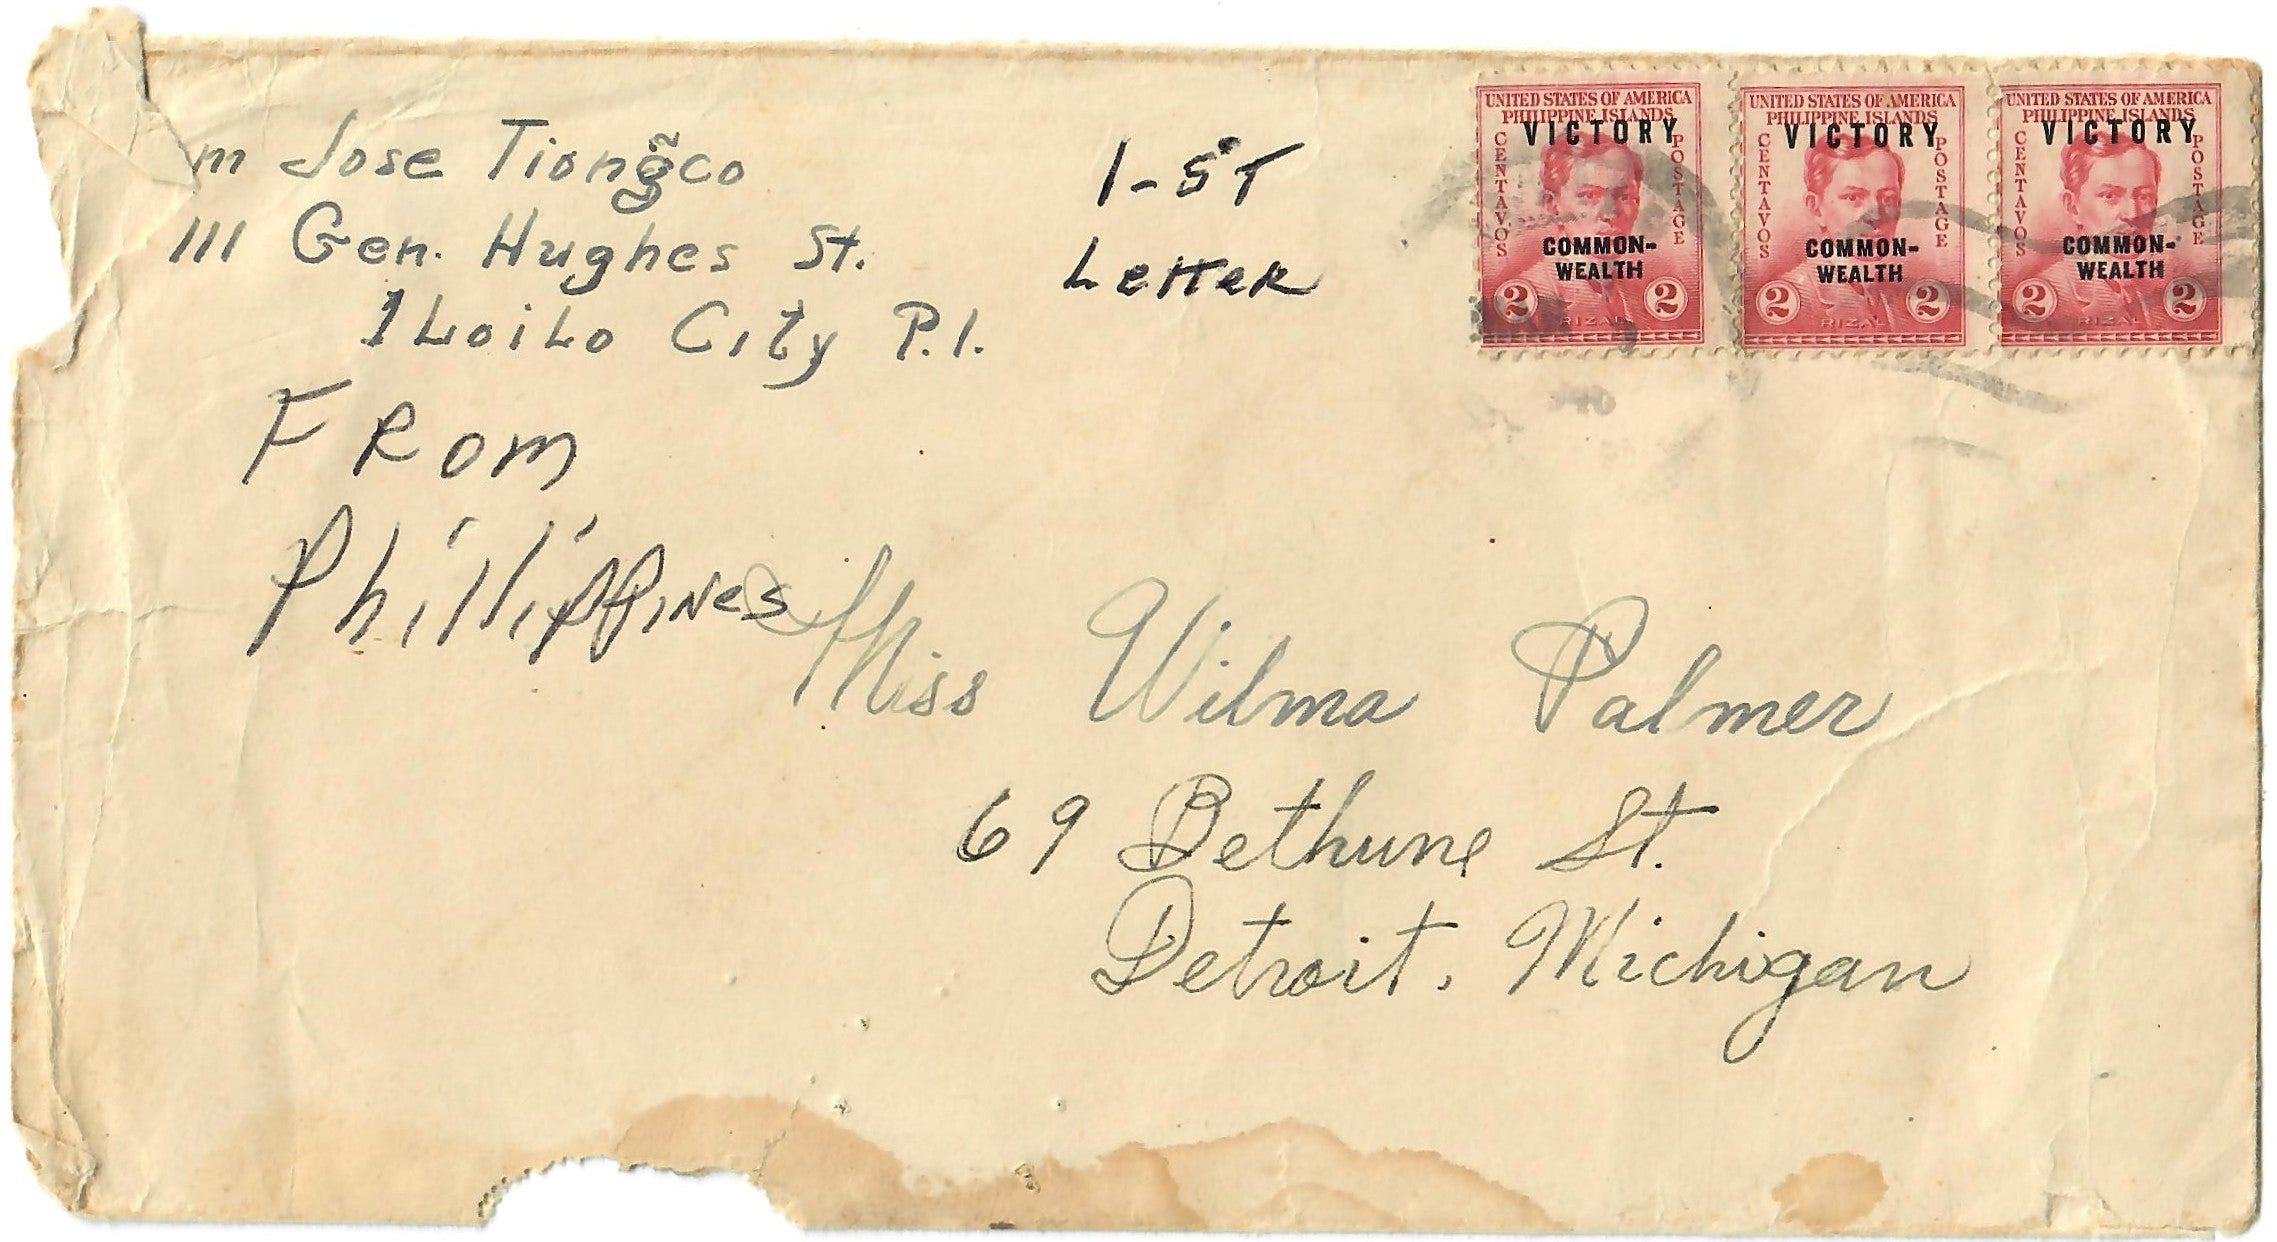 m Jose Tiong̃co
111 Gen. Hughes St.
ILoiLo City P.I.
1-ST
Letter
FRom
Phillippines
UNITED STATES OF AMERICA
PHILIPPINE ISLANDS
VICTORY
CENTAVOS
POSTAGE
COMMON-
WEALTH
2 2
RIZAL
UNITED STATES OF AMERICA
PHILIPPINE ISLANDS
VICTORY
CENTAVOS
POSTAGE
COMMON-
WEALTH
2 2
RIZAL
UNITED STATES OF AMERICA
PHILIPPINE ISLANDS
VICTORY
CENTAVOS
POSTAGE
COMMON-
WEALTH
2 2
RIZAL
Miss Wilma Palmer
69 Bethune St.
Detroit, Michigan